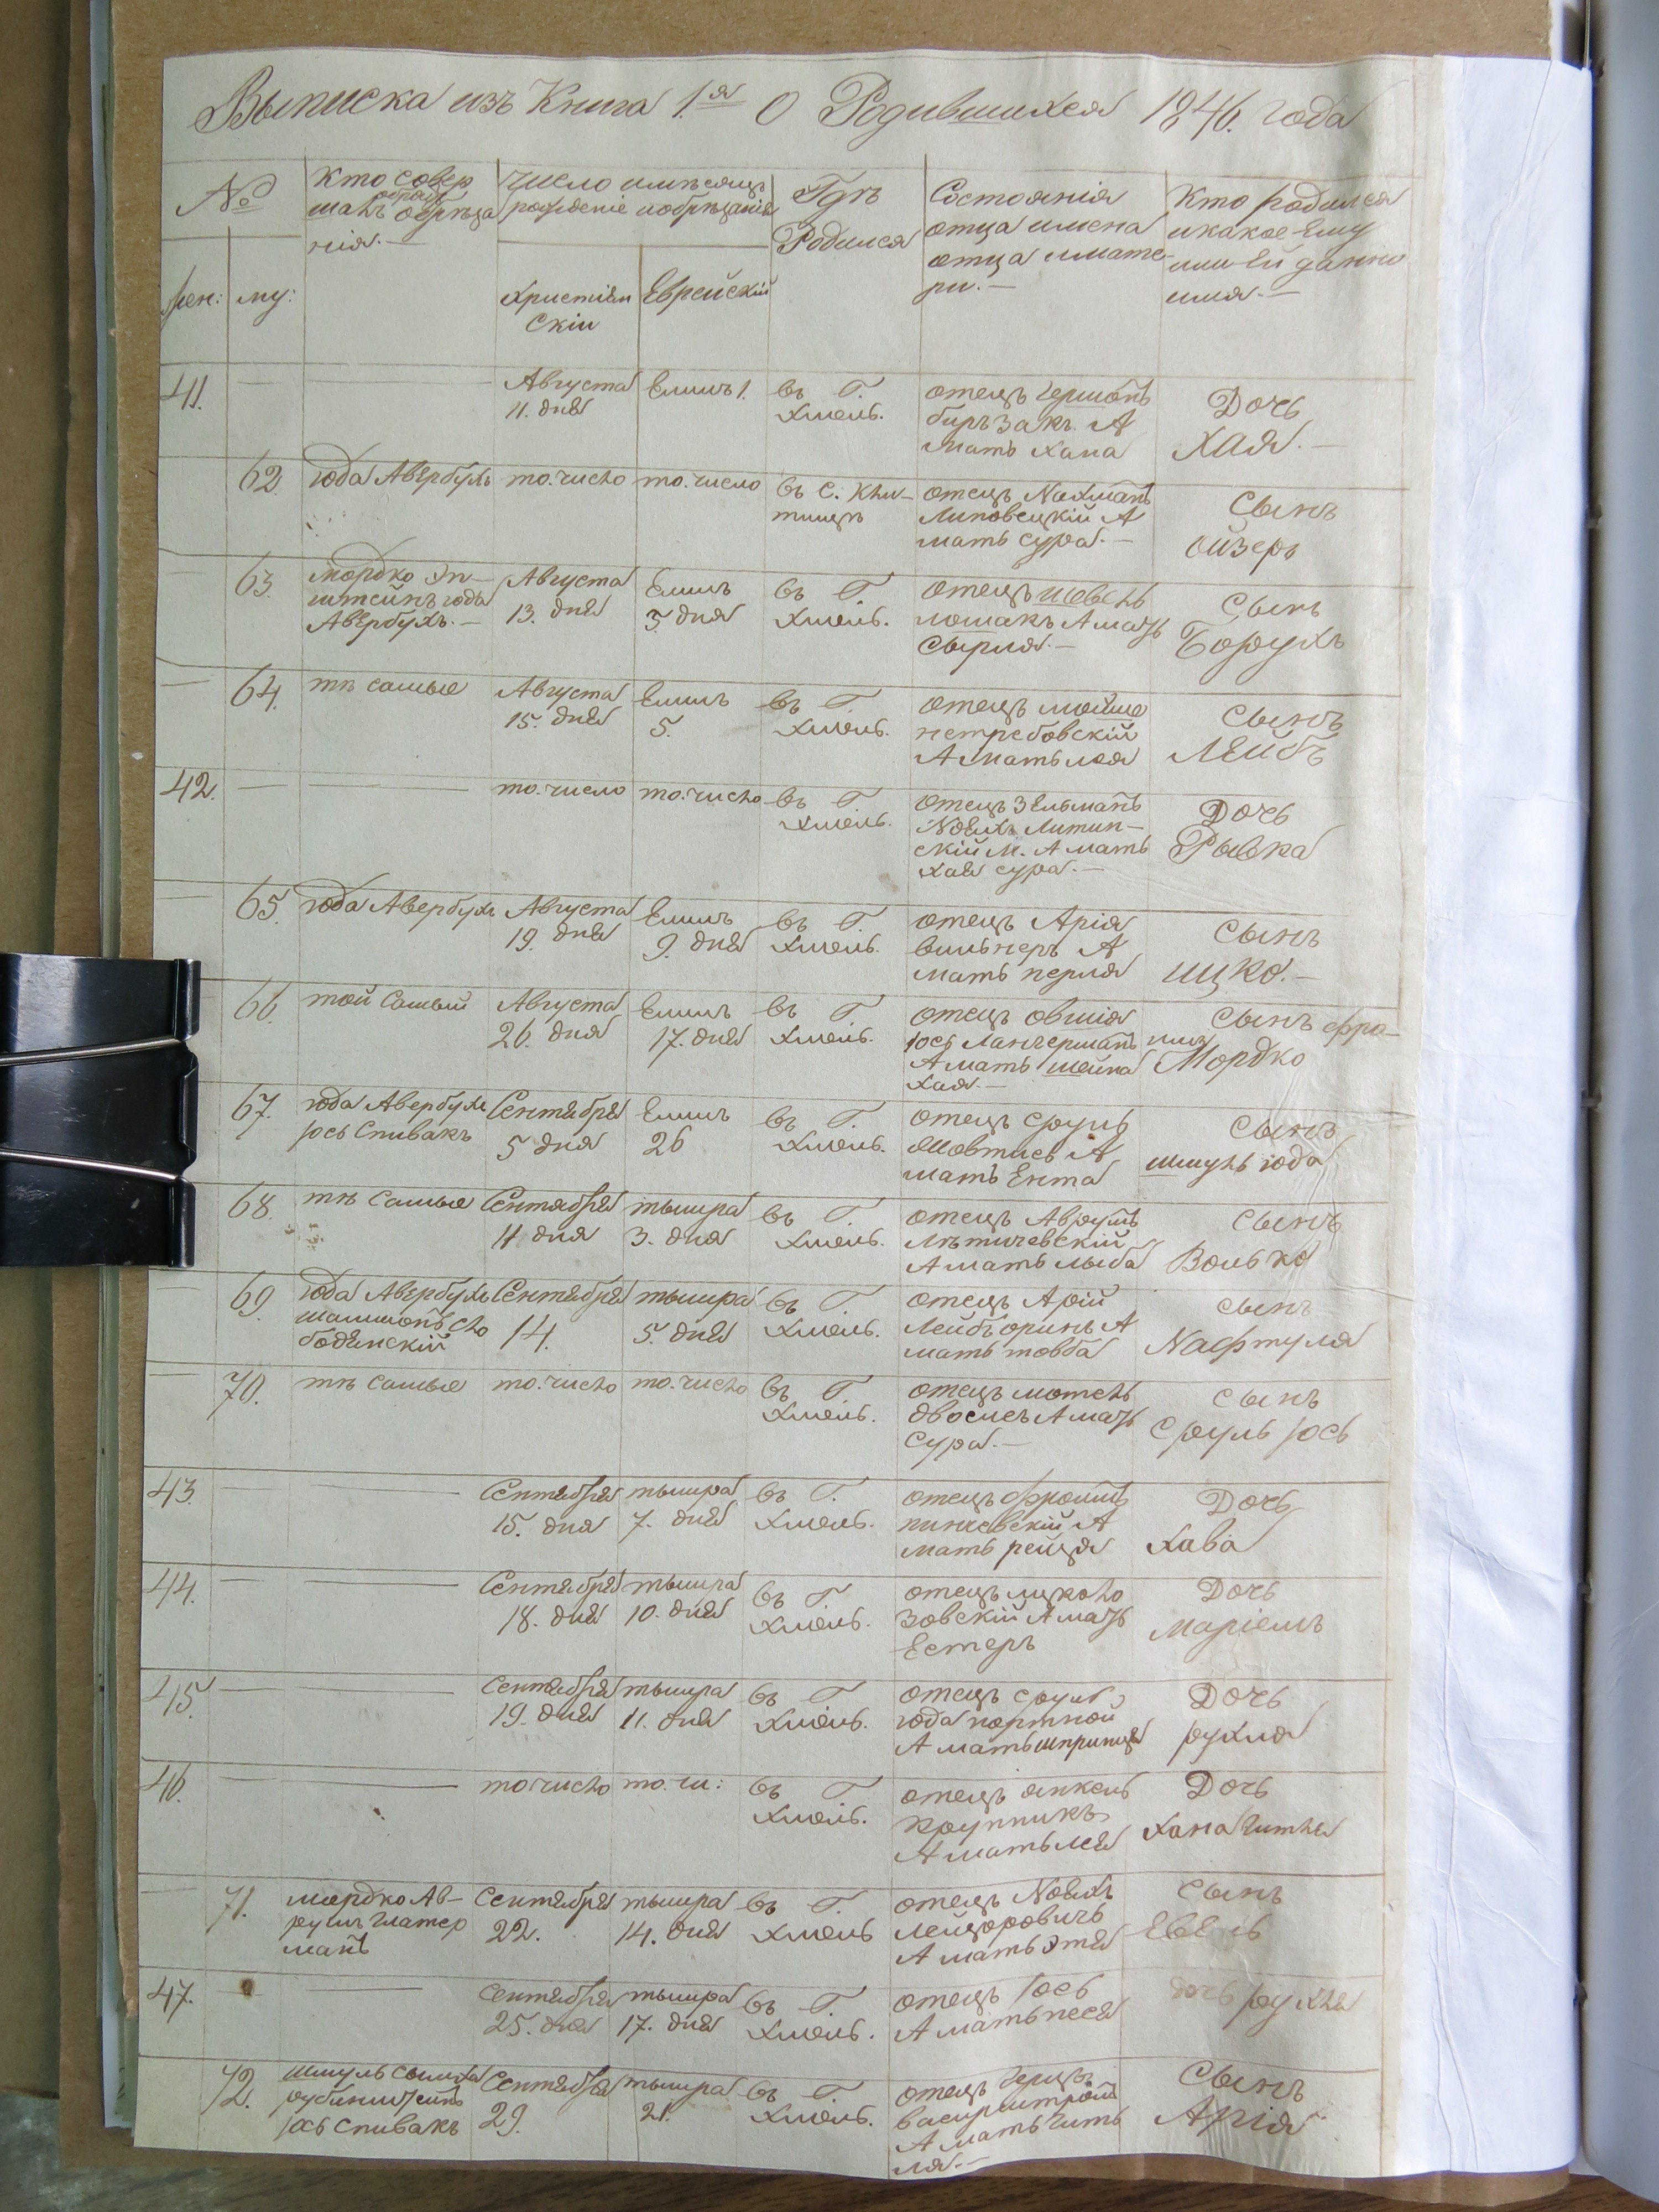 Выписка изъ Книга 1.я О Родившихся 1846. года
№
Кто совер
обряд
шалъ обрѣза
нія.—
Число имѣсяцъ
рожденіе иобрѣзанія
Гдѣ
Родился
Состоянія
отца имена
отца имате-
ри.—
Кто родился
икакое Ему
или Ей данно
имя.—
жен:
му:
Христіян
скіи
Еврейскій
41.
Августа
11. дня
Елилъ 1.
въ Г.
Хмѣль.
отецъ Гершонъ
биръзакъ. А
мать Хана
Дочь
ХАя.—
62.
Іода Авербухъ
то.число
то.число
въ с.
отецъ Nахманъ
Липовецкій А
мать сура.—
Сынъ
Ойзеръ
63.
Мордко Эп-
штейнъ Іода
Авербухъ.—
Августа
13. дня
Елилъ
3. дня
въ Г
Хмѣль.
отецъ шевель
лошакъ А мать
Сырля.—
Сынъ
Борухъ
64.
тѣ самые
Августа
15. дня
Елилъ
5.
въ Г.
Хмѣль.
отецъ мойше
нетребовскій
А мать лея
сынъ
Лейбъ
42.
то.число
то.число
въ Г.
Хмѣль.
отецъ Зельманъ
Nоехъ Литин-
скій М. А мать
хая сура.—
Дочь
Рывка
65.
Іода Авербухъ
Августа
19. дня
Елилъ
9. дня
въ Г.
Хмѣль.
отецъ Арія
вильнеръ А
мать перля
сынъ
ицко.—
66.
той самый
Августа
26. дня
Елилъ
17. дня
въ Г
Хмѣль.
отецъ овшія
Іось Лангерманъ
А мать шейна
хая.—
Сынъ фро-
имъ
Мордко
67.
Іода Авербухъ
Іось Спивакъ
Сентября
5 дня
Елилъ
26
въ Г.
Хмѣль.
отецъ Сруль
Жовтись А
мать Ента
сынъ
шмуль Іода
68.
тѣ самые
Сентября
11 дня
тышра
3. дня
въ Г.
Хмѣль.
отецъ Аврумъ
Лѣтичевскій
А мать лыба
сынъ
Волько
69.
Іода Авербухъ
шамшонъ сло
бодянскій
Сентября
14.
тышра
5. дня
въ Г.
Хмѣль.
отецъ Арій
Лейбъ оринь А
мать товба
сынъ
Nафтуля
70.
тѣ самые
то.число
то.число
въ Г
Хмѣль.
отецъ мотель
двосись А мать
сура.—
сынъ
Сруль Іось
43.
Сентября
15. дня
тышра
7. дня
въ Г.
Хмѣль.
отецъ фроимъ
пинчевскій А
мать рейзя
Дочь
Хава
44.
Сентября
18. дня
тышра
10. дня
въ Г.
Хмѣль.
отецъ ицко ло
зовскій А мать
Естеръ
Дочь
Маріемъ
45.
Сентября
19. дня
тышра
11. дня
въ Г
Хмѣль.
отецъ сруль
Іода портной
А мать шпринця
Дочь
рухля
46.
то.число
то.чи:
въ Г
Хмѣль.
отецъ янкель
Крупникъ
А мать лея
Дочь
Хана Гитля
71.
Мордко Ав-
румъ Глатер
манъ
Сентября
22.
тышра
14. дня
въ Г.
Хмѣль
отецъ Nоехъ
Лейзоровичъ
А мать Этя
сынъ
Евель
47.
Сентября
25. дня
тышра
17. дня
въ Г.
Хмѣль.
отецъ Іось
А мать песя
дочь рухля
72.
шмуль сымха
рубинштейнъ
Іось Спивакъ
Сентября
29.
тышра
21.
въ Г.
Хмѣль.
отецъ Герцъ
А мать Гит
ля.—
Сынъ
Арія